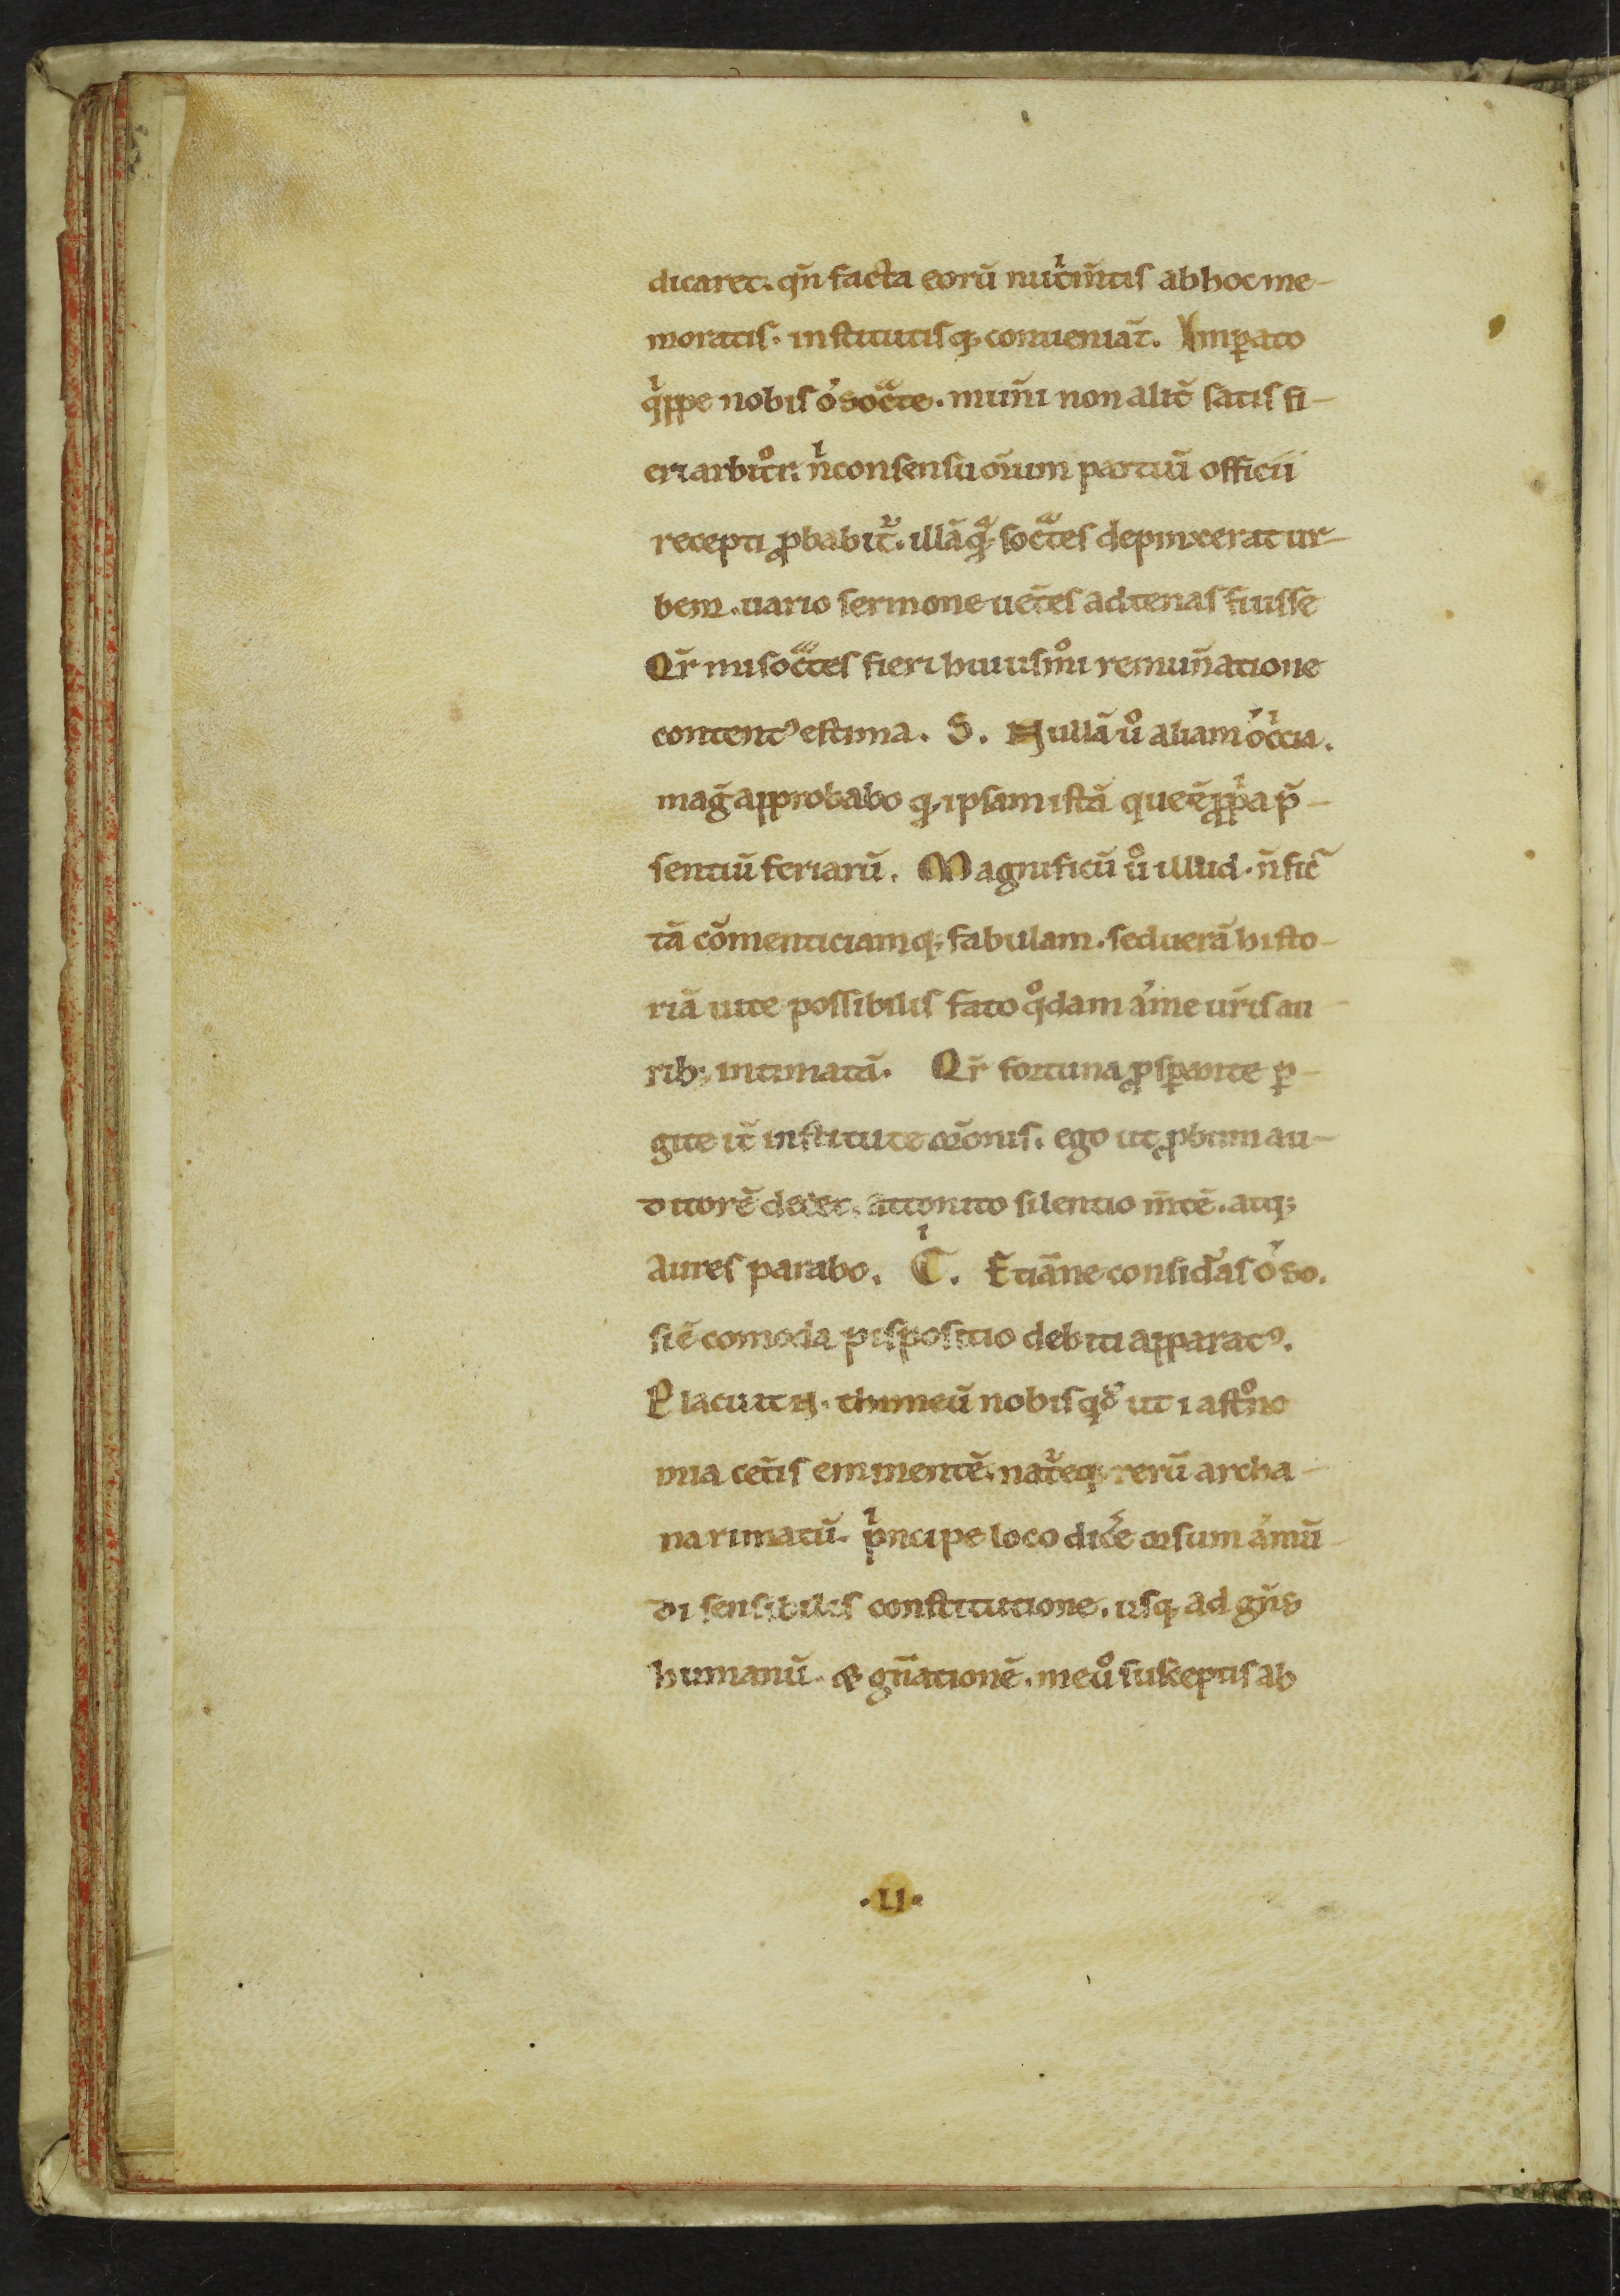 dicaret. qn̄ facta eorū nut̾im̄tis ab hoc me-
moratis. institutisq; conueniāt. Imꝑato
qͥppe nobis o᷎ socͣte. mun̄i non alit̄ satis fi-
eri arbitͦr. nͥ consensu oīum partiū officii
recepti ꝓbabit᷑. illā qͣ socͣtes depinxerat ur-
bem. uario sermone uet̄es adtenas fuisse
Qr̄ mi socͣtes fieri huiusmͦi remun̄atione
content᷒ estima. S. Nullā uͦ aliam o᷎ cͥcia.
maḡ approbabo q; ipsam istā que ē ꝓpͥa p̄-
sentiū feriarū. Magnificū uͦ illud. n̄ fic̄
tā cōmenticiamq; fabulam. sed uerā histo-
riā uite possibilis fato qͦdam a᷎ me ur̄is au-
rib; intimatā. Qr̄ fortuna ꝓsꝑante ꝑ-
gite it̄ institute or̄onis. ego ut ꝓbum au-
ditorē decet. attonito silentio m̄tē. atq;
aures parabo. Cͥ. Etiāne consid̾as o᷎ so.
si ē comoda pispositio debiti apparat᷒.
Placuit .n. thimeū nobis qͥd᷎ ut i astͦno
mia cet̄is eminentē. nat᷑eq; rerū archa-
na rimatū. pͥncipe loco dic̾e orsum a᷎ mū-
di sensibilis constitutione. usq; ad gn̄s
humanū. & gn̄ationē. me uͦ susceptis ab
.II.